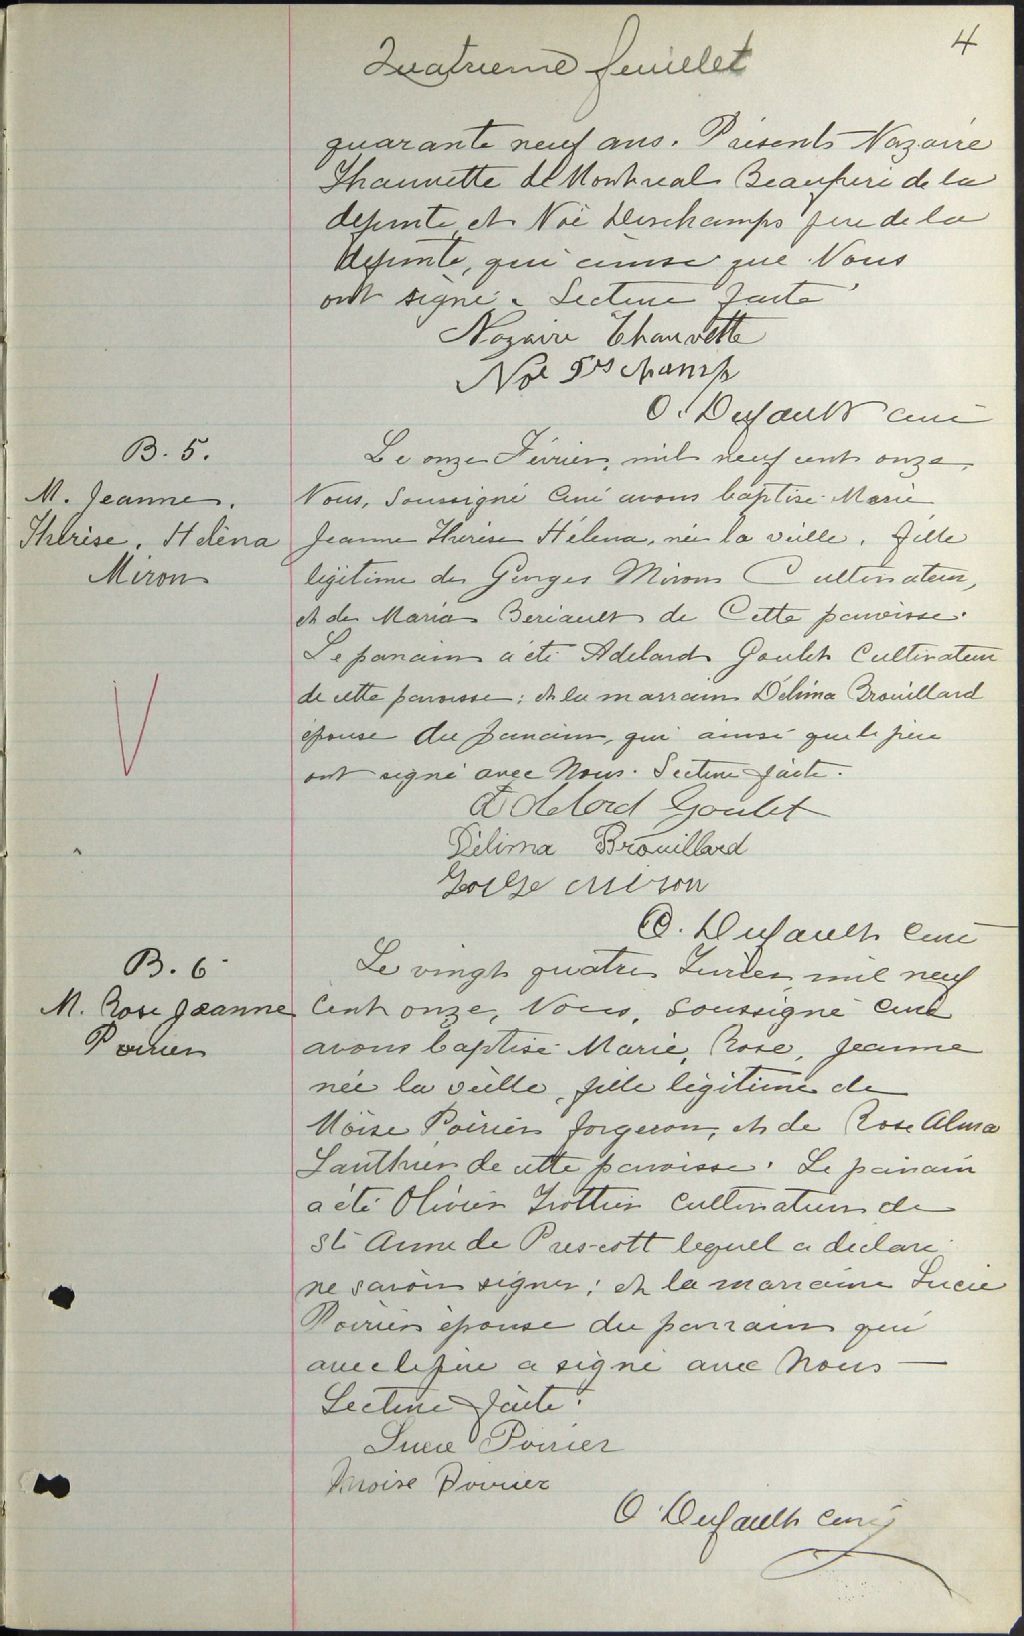 Quatrieme feuillet
4
quarante neuf ans. Présents Nazaire
Thauvette de Montreal Beaufrere de la
defunte, et Noë Deschamps pere de la
defunte, qui ainsi que Nous
ont signé. Lecture faite
Nazaire Thauvette
Noe Deschamp
O. Dufault curé
B. 5.
M. Jeanne.
Thérèse. Helèna
Miron
Le onze Février, mil neuf cent onze,
Nous, Soussigné Curé avons baptisé Marie
Jeanne Thérèse Hélena, née la veille, fille
légitime de Georges Miron Cultivateur,
et de Maria Beriault de Cette paroisse.
Le parrain a été Adelard Goulet Cultivateur
de cette paroisse; et la marraine Délima Brouillard
épouse du parrain, qui ainsi que le père
ont signé avec Nous. Lecture faite.
Adelard Goulet
Délima Brouillard
George Miron
O. Dufault Curé
B. 6
M. Rose Jeanne
Poirier
Le vingt quatre Février, mil neuf
Cent onze, Nous, Soussigné curé
avons baptisé Marie, Rose, Jeanne
née la veille, fille légitime de
Moïse Poirier forgeron, et de Rose Alma
Lauthier de cette paroisse. Le parrain
a été Olivier Trottier Cultivateur de
Ste Anne de Prescott lequel a déclaré
ne savoir signer; et la marraine Lucie
Poirier épouse du parrain qui
avec le père a signé avec Nous —
Lecture faite.
Lucie Poirier
Moise Poirier
O. Dufault curé